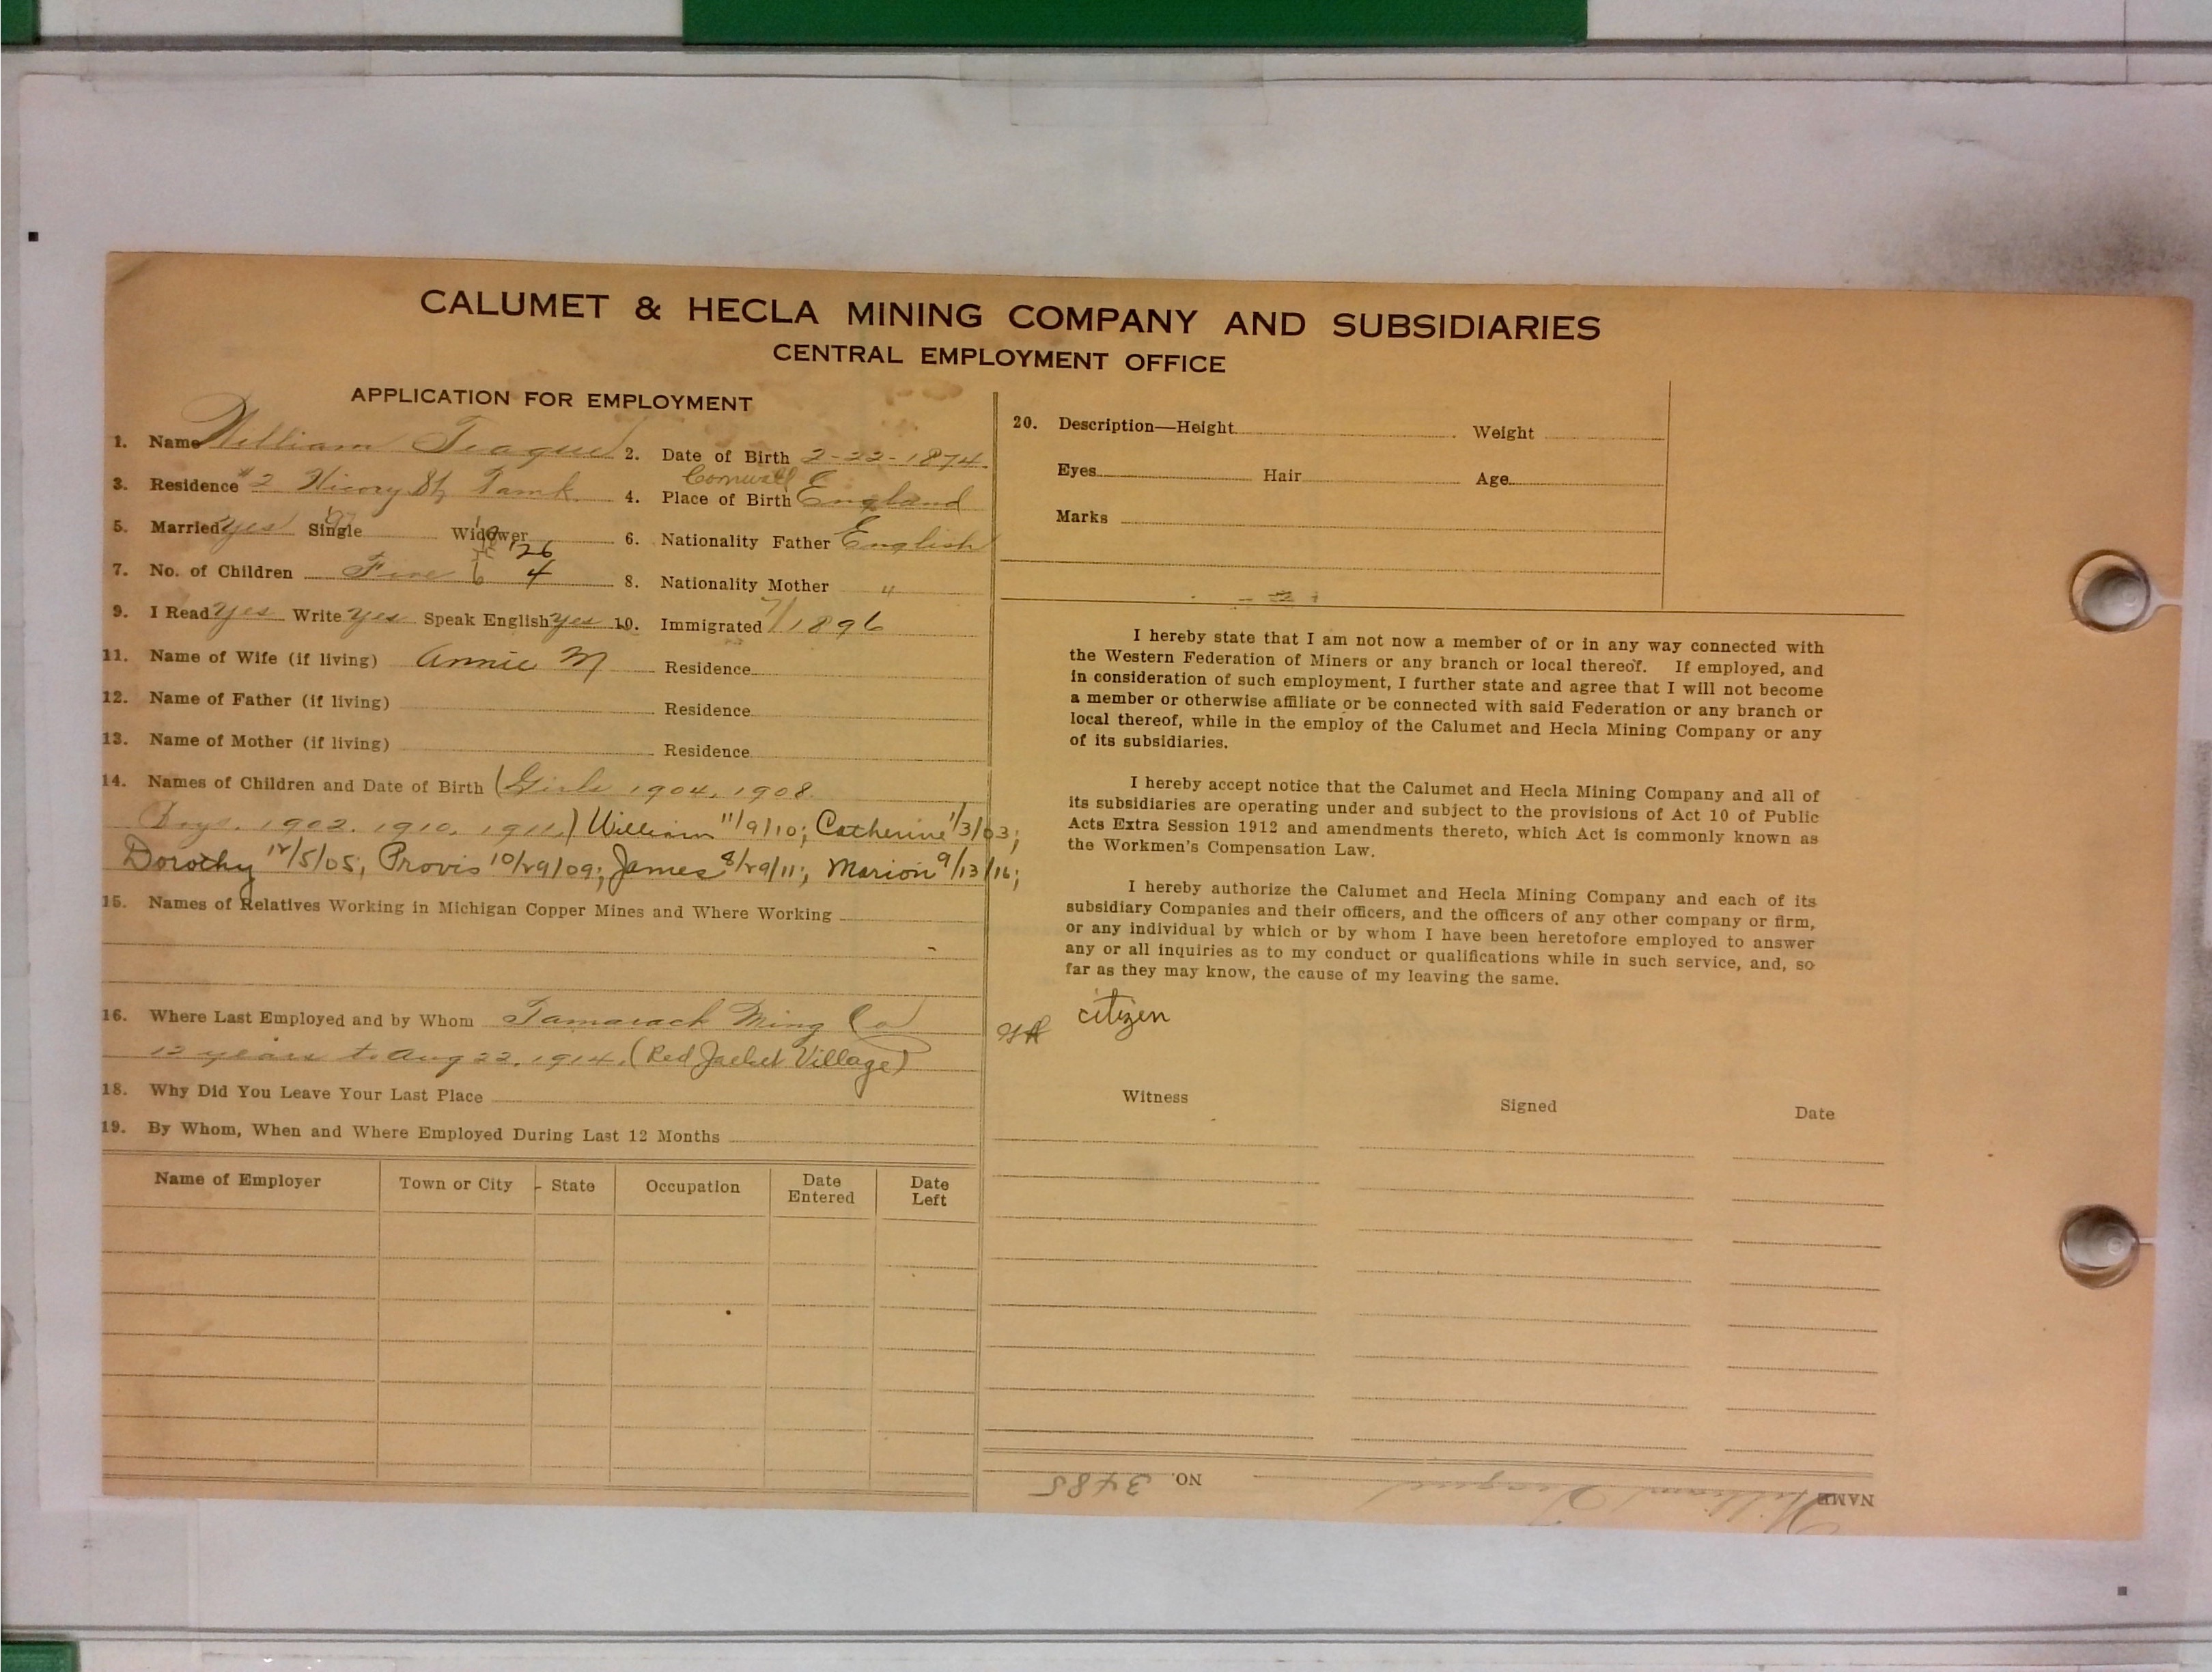 CALUMET & HECLA MINING COMPANY AND SUBSIDIARIES
CENTRAL EMPLOYMENT OFFICE
APPLICATION FOR EMPLOYMENT
1. Name William Teague 2. Date of Birth 2-22-1874.
3. Residence #2 Hicory St, Tamk. 4. Place of Birth Cornwall England
5. Married yes Single Widower 6. Nationality Father English
'26
7. No. of Children Five 6 4 8. Nationality Mother "
9. I Read yes Write yes Speak English yes 10. Immigrated 7/1896
11. Name of Wife (if living) Annie M Residence
12. Name of Father (if living) Residence
13. Name of Mother (if living) Residence
14. Names of Children and Date of Birth (Girls 1904, 1908.
Boys. 1902. 1910. 1911.) William 11/9/10; Catherine 1/3/03;
Dorothy 12/5/05; Provis 10/29/09; James 8/29/11; Marion 9/13/16;
15. Names of Relatives Working in Michigan Copper Mines and Where Working
16. Where Last Employed and by Whom Tamarack Ming Co
12 years to Aug 22, 1914. (Red Jacket Village)
18. Why Did You Leave Your Last Place
19. By Whom, When and Where Employed During Last 12 Months
Name of Employer Town or City State Occupation Date Entered Date Left
20. Description—Height Weight
Eyes Hair Age
Marks
I hereby state that I am not now a member of or in any way connected with
the Western Federation of Miners or any branch or local thereof. If employed, and
in consideration of such employment, I further state and agree that I will not become
a member or otherwise affiliate or be connected with said Federation or any branch or
local thereof, while in the employ of the Calumet and Hecla Mining Company or any
of its subsidiaries.
I hereby accept notice that the Calumet and Hecla Mining Company and all of
its subsidiaries are operating under and subject to the provisions of Act 10 of Public
Acts Extra Session 1912 and amendments thereto, which Act is commonly known as
the Workmen's Compensation Law.
I hereby authorize the Calumet and Hecla Mining Company and each of its
subsidiary Companies and their officers, and the officers of any other company or firm,
or any individual by which or by whom I have been heretofore employed to answer
any or all inquiries as to my conduct or qualifications while in such service, and, so
far as they may know, the cause of my leaving the same.
citizen
Witness Signed Date
NAME William Teague NO. 3485